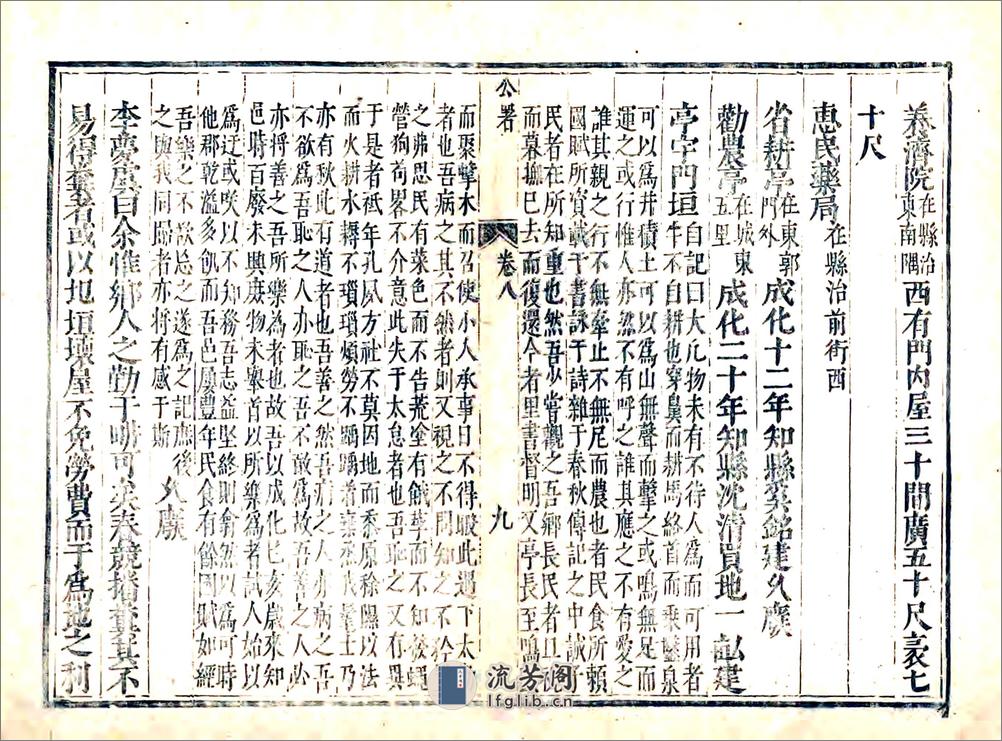 養濟院在縣治東南隅西有門內屋三十間廣五十尺袤七
十尺
惠民藥局在縣治前街西
省耕亭在東郭門外成化十二年知縣奚銘建久廢
勸農亭在城東五里成化二十年知縣沈清買地一畝建
亭宇門垣自記曰大凡物未有不待人為而可用者
牛不自耕也穿鼻而耕馬絡首而乘鑿泉
可以為井積土可以為山無聲而擊之或鳴無足而
運之或行惟人亦然不有呼之誰其應之不有愛之
誰其親之行不無牽止不無尼而農也者民食所賴
國賦所資載于書詠于詩雜于春秋傳記之中誠
民者在所知重也然吾少嘗觀之吾鄉長民者且
而暮撫已去而復還今者里書督明又亭長至鳴
公署
卷八
九
而聚擊木而召使小人承事日不得暇此過下太
者也吾病之其不然者則又視之不問知之不令
之弗思民有菜色而不告荒塗有餓莩而不知發蠅
營狗苟畧不介意此失于太怠者也吾耻之又有異
于是者祗年孔夙方社不莫因地而黍原稌隰以法
而火耕水耨不瑣瑣煩勞不踽踽者髦士乃
亦有秋此有道者也吾善之然吾病之人亦病之吾
不欲為吾恥之人亦恥之吾不敢為故吾善之人必
亦將善之吾所樂為者也故吾以成化己亥歲來知
邑時百廢未興庶物未舉首以所樂為者試人始以
為迂或咲以不知務吾志益堅終則翕然以為可時
他郡乾溢多飢而吾邑屢豐年民食有餘國賦如經
吾樂之不欲忘之遂為之記應後
之與我同歸者亦將有感于斯久廢
李夢庚曰余惟鄉人之勤于畊可矣春競播其不
易得葺者或以圯垣壞屋不免勞費而于為地之利
流芳閣
lfglib.cn